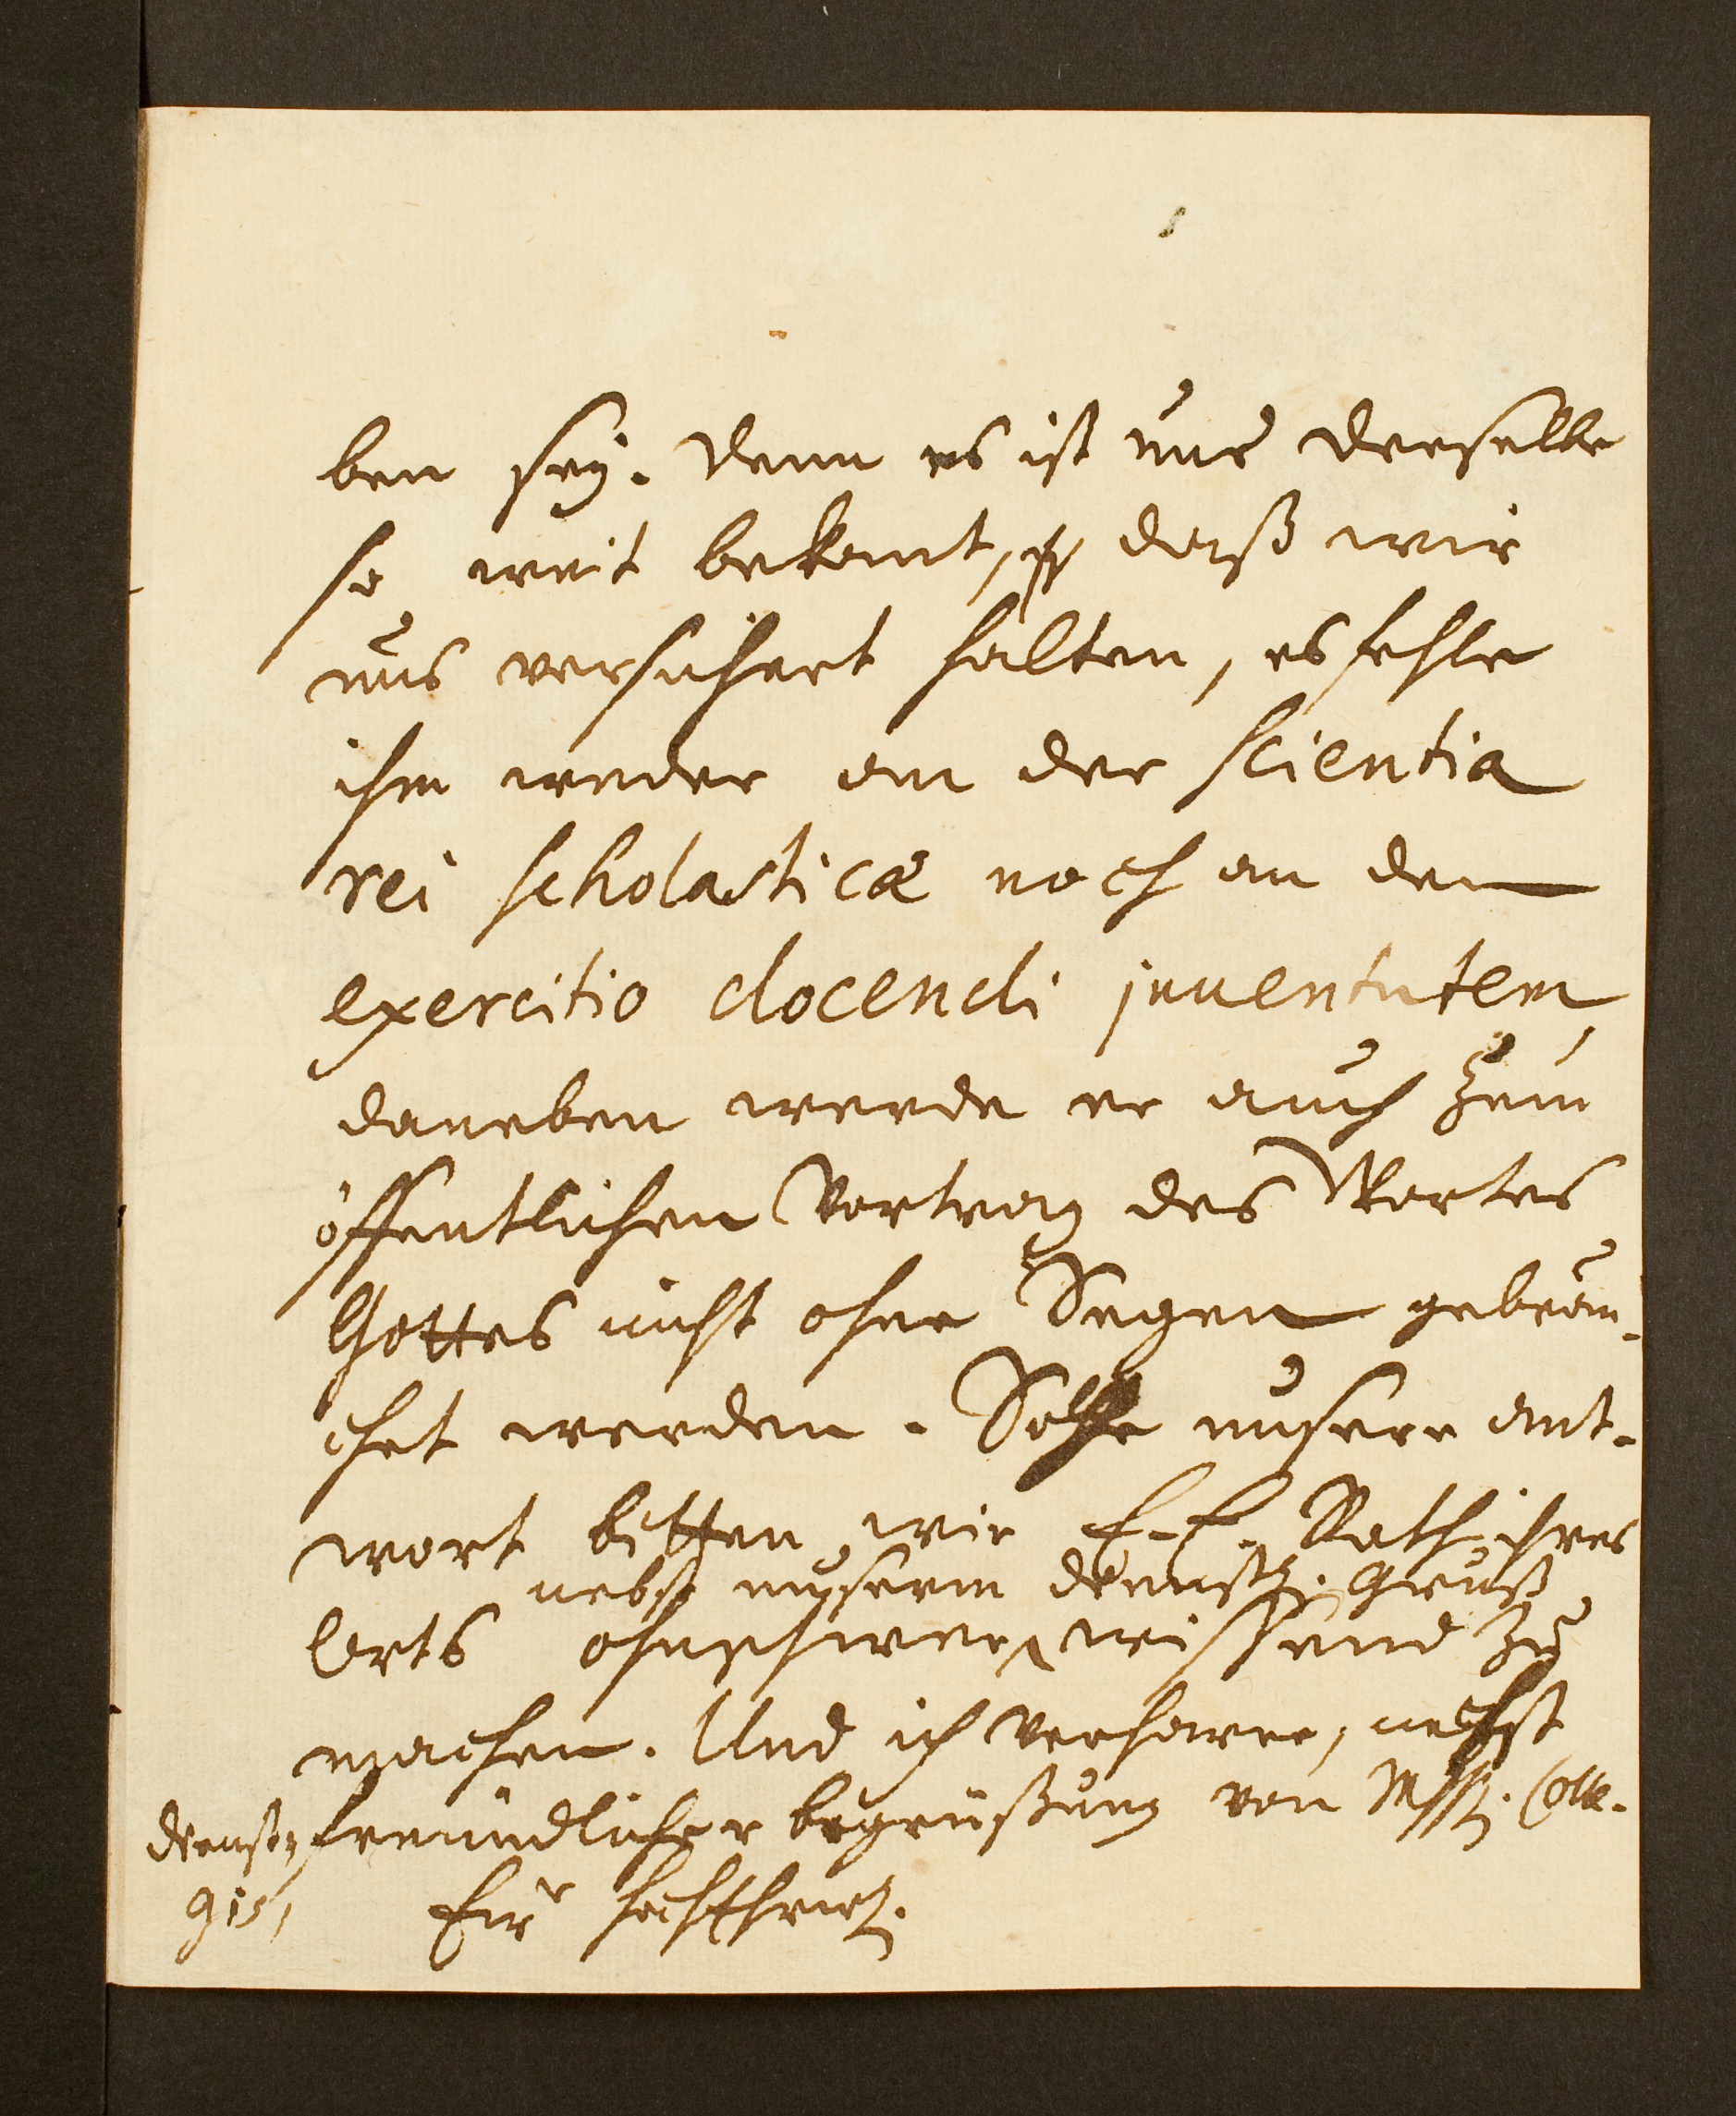 ben sey. Denn es ist uns derselbe
so weit bekant, daß wir
uns versichert halten, es fehle
ihm weder an der scientia
rei scholasticæ noch an dem
exercitio docendi juventutem,
daneben werde er auch zum
öffentlichen Vortrag des Wortes
Gottes nicht ohne Segen gebrau-
chet werden. Solche unsere ant-
wort bitten wir E. E. Rath ihres
nebst unserm dienstl. Gruß
Orts ohnschwer wissend zu
machen. Und ich verharre, nechst
dienst-freundlicher begrüßung von Colle-
gis, Ew hochEhrw.